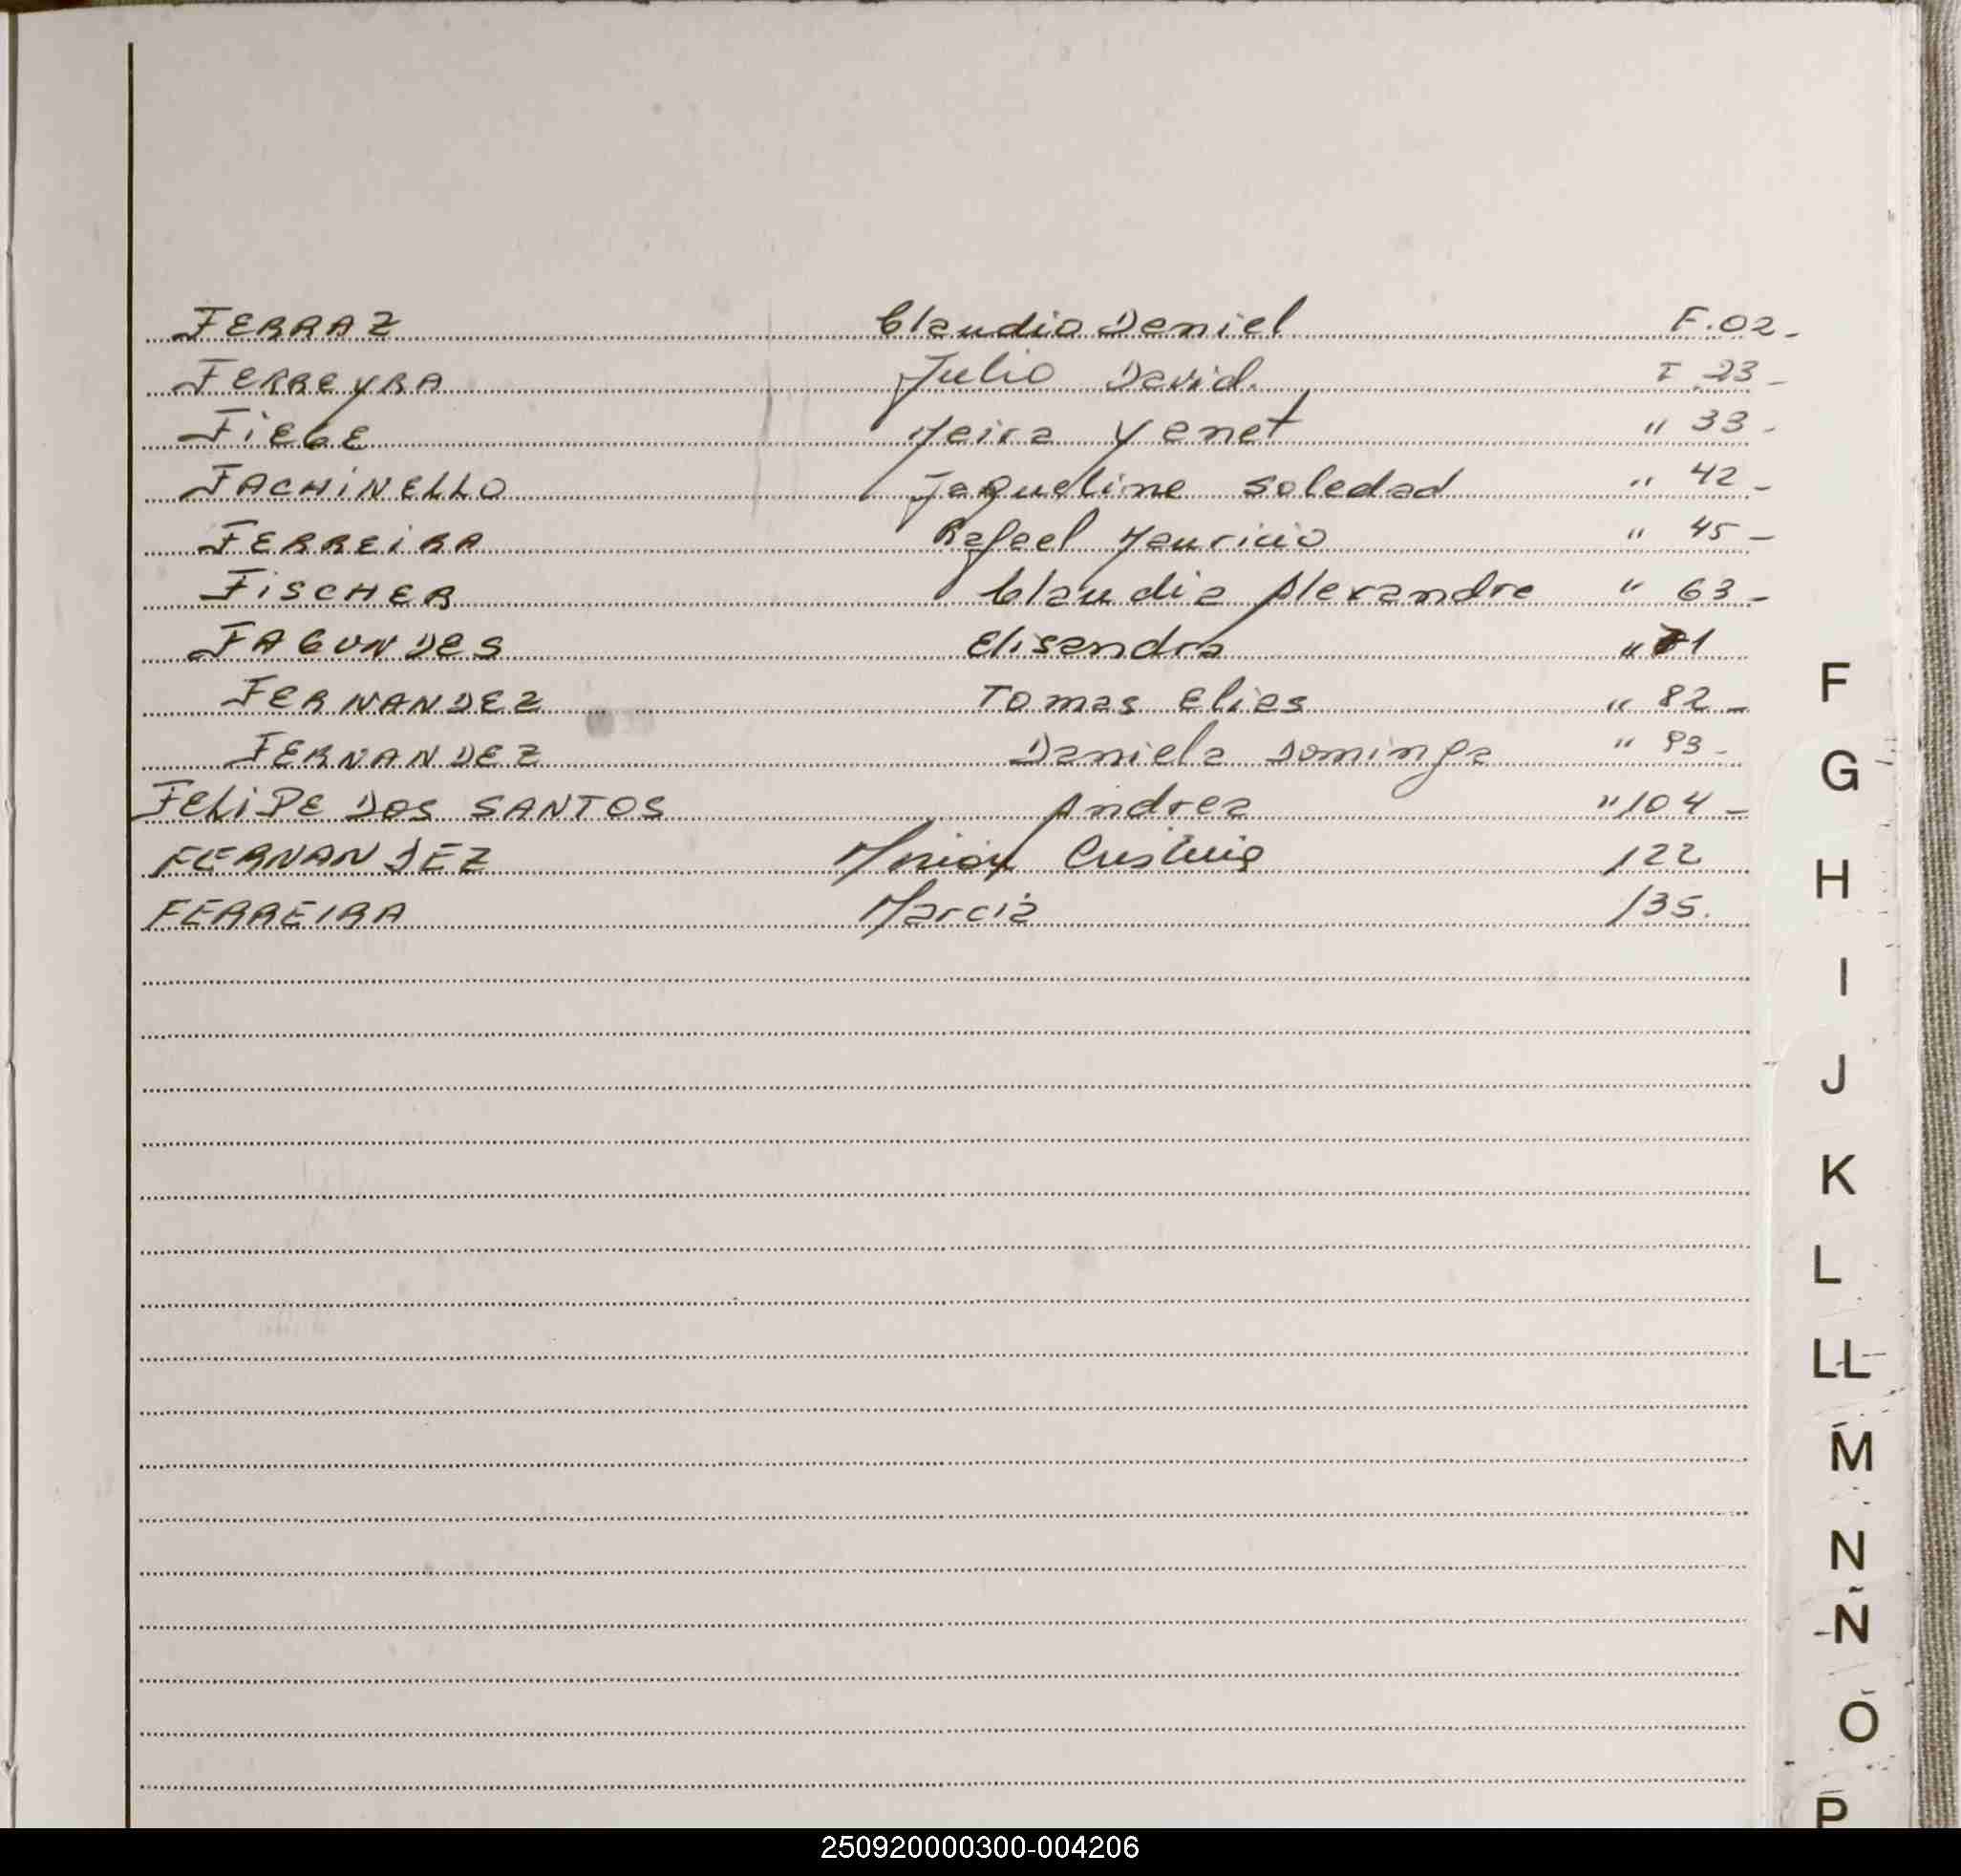 FERRAZ Claudio Daniel F.02-
FERREYRA Julio David. F 23-
FiEGE Meira Yanet " 33-
FACHiNELLO Jaqueline Soledad " 42-
FERREiRA Rafael Mauricio " 45-
FiSCHER Claudia Alexandra " 63-
FAGUNDES Elisandra " 71
FERNANDEZ Tomas Elias " 82-
FERNANDEZ Daniela Dominga " 93-
FELiPE DOS SANTOS Andrea " 104-
FERNANDEZ Cristina 122
FERREIRA Marcia 135.
F
G
H
I
J
K
L
LL
M
N
Ñ
O
P
250920000300-004206